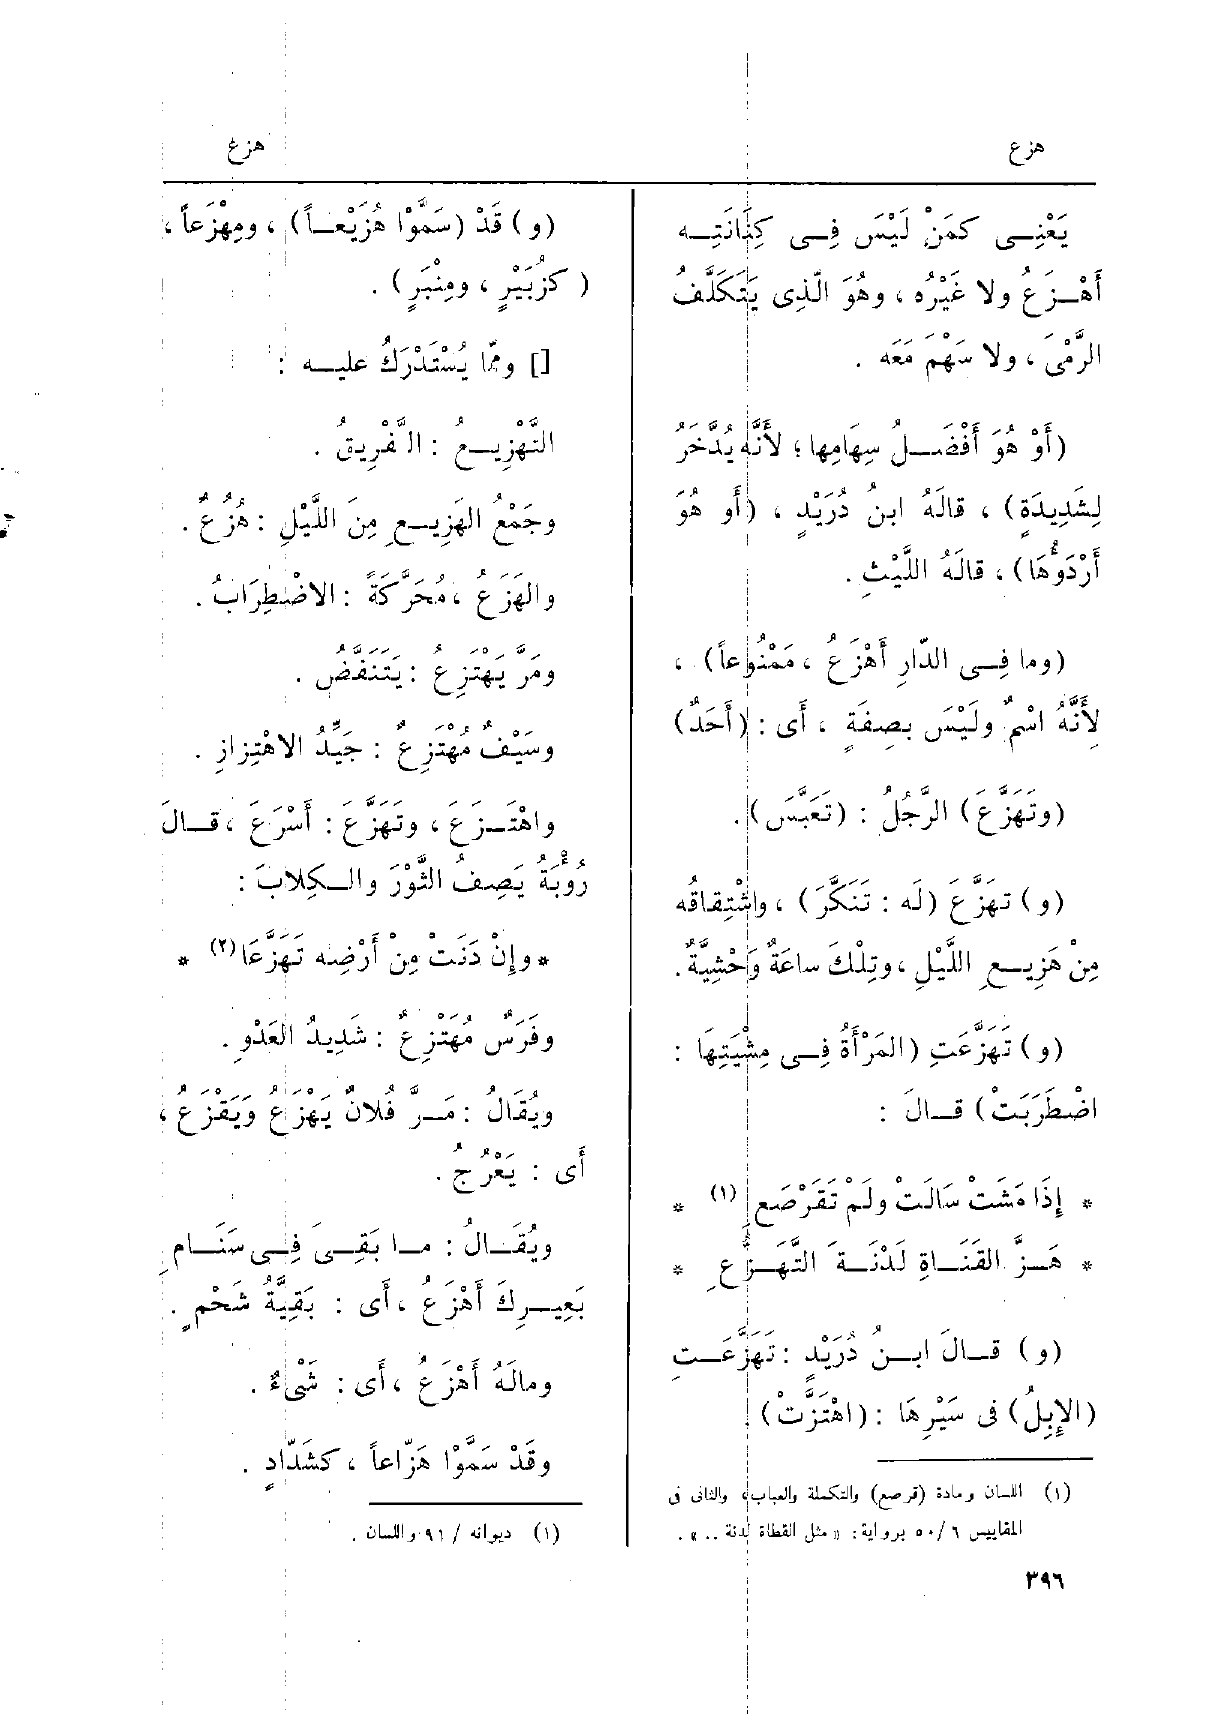 هزع
هزع
يَعْنِى كمَنْ لَيْسَ فِى كِنَانَتِه
أَهْزَعُ ولا غَيْرُه ، وهُوَ الَّذِى يَتَكَلَّفُ
الرَّمْىَ ، ولا سَهْمَ مَعَه .
(أَوْ هُوَ أَفْضَلُ سِهَامِها ؛ لأَنَّه يُدَّخَرُ
لِشَدِيدَةٍ) ، قالَهُ ابنُ دُرَيْدٍ ، (أَو هُوَ
أَرْدَؤُهَا) ، قالَهُ اللَّيْثِ .
(وما فِى الدَّارِ أَهْزَعُ ، مَمْنُوعاً) ،
لِأَنَّهُ اسْمٌ ولَيْسَ بصِفَةٍ ، أَى : (أَحَدٌ)
(وتَهَزَّعَ) الرَّجُلُ : (تَعَبَّسَ) .
(و) تهَزَّعَ (لَه : تَنَكَّرَ) ، واشْتِقاقُه
مِنْ هَزِيعِ اللَّيْلِ ، وتِلْكَ ساعَةٌ وَحْشِيَّةٌ .
(و) تَهَزَّعَتِ (المَرْأَةُ فِى مِشْيَتِهَا :
اضْطَرَبَتْ) قالَ :
* إِذَا مَشَتْ سَالَتْ ولَمْ تَقَرْصَعِ (١) *
* هَزَّ القَنَاةِ لَدْنَةَ التَّهَزُّعِ *
(و) قالَ ابنُ دُرَيْدٍ : تَهَزَّعَتِ
(الإِبِلُ) فى سَيْرِهَا : (اهْتَزَّتْ)
(١) اللسان ومادة (قرصع) والتكملة والعباب ، والثانى فى
المقاييس ٦/٥٠ برواية : « مثل القطاة لدنة .. » .
٣٩٦
(و) قَدْ (سَمَّوْا هُزَيْعاً) ، ومِهْزَعاً ،
(كزُبَيْرٍ ، ومِنْبَرٍ) .
[] ومّما يُسْتَدْرَكُ عليه :
التَّهْزِيعُ : التَّفْرِيقُ .
وجَمْعُ الهَزِيعِ مِنَ اللَّيْلِ : هُزُعٌ .
والهَزَعُ ، مُحَرَّكَةً : الاضْطِرَابُ .
ومَرَّ يَهْتَزِعُ : يَتَنَفَّضُ .
وسَيْفٌ مُهْتَزِعٌ : جَيِّدُ الاهْتِزازِ .
واهْتَزَعَ ، وتَهَزَّعَ : أَسْرَعَ ، قالَ
رُؤْبَةُ يَصِفُ الثَّوْرَ والكِلابَ :
* وإِنْ دَنَتْ مِنْ أَرْضِه تَهَزَّعَا (٢) *
وفَرَسٌ مُهْتَزِعٌ : شَدِيدُ العَدْوِ .
ويُقَالُ : مَرَّ فُلانٌ يَهْزَعُ وَيَقْزَعُ ،
أَى : يَعْرُجُ .
ويُقَالُ : ما بَقِىَ فِى سَنَامِ
بَعِيرِكَ أَهْزَعُ ، أَى : بَقِيَّةُ شَحْمٍ .
ومالَهُ أَهْزَعُ ، أَى : شَىْءٌ .
وقَدْ سَمَّوْا هَزّاعاً ، كشَدّادٍ .
(١) ديوانه / ٩١ واللسان .